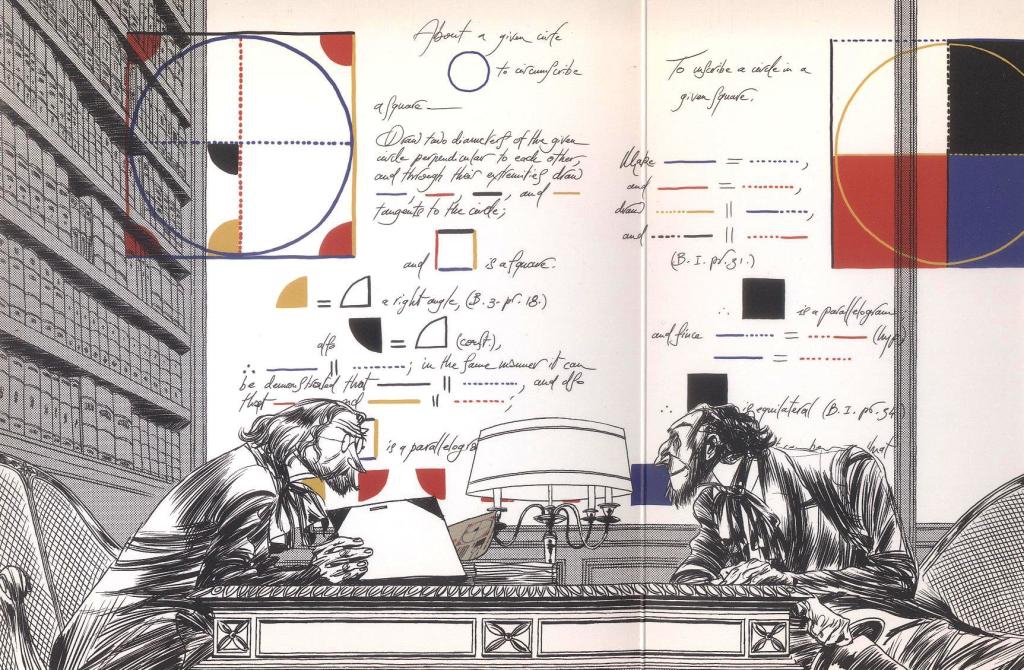 About a given circle
to circumscribe
a square
Draw two diameters of the given
circle perpendicular to each other,
and through their extremities draw
, , , and
tangents to the circle;
and is a square.
= a right angle, (B. 3. pr. 18.)
also = (const.),
∴ || ; in the same manner it can
be demonstrated that || , and also
that and || ;
is a parallelogra
To inscribe a circle in a
given square.
Make = ,
and = ,
draw || ,
and ||
(B. I. pr. 31.)
∴ is a parallelogram
and since = (hyp
=
∴ is equilateral (B. I. pr. 34.
that